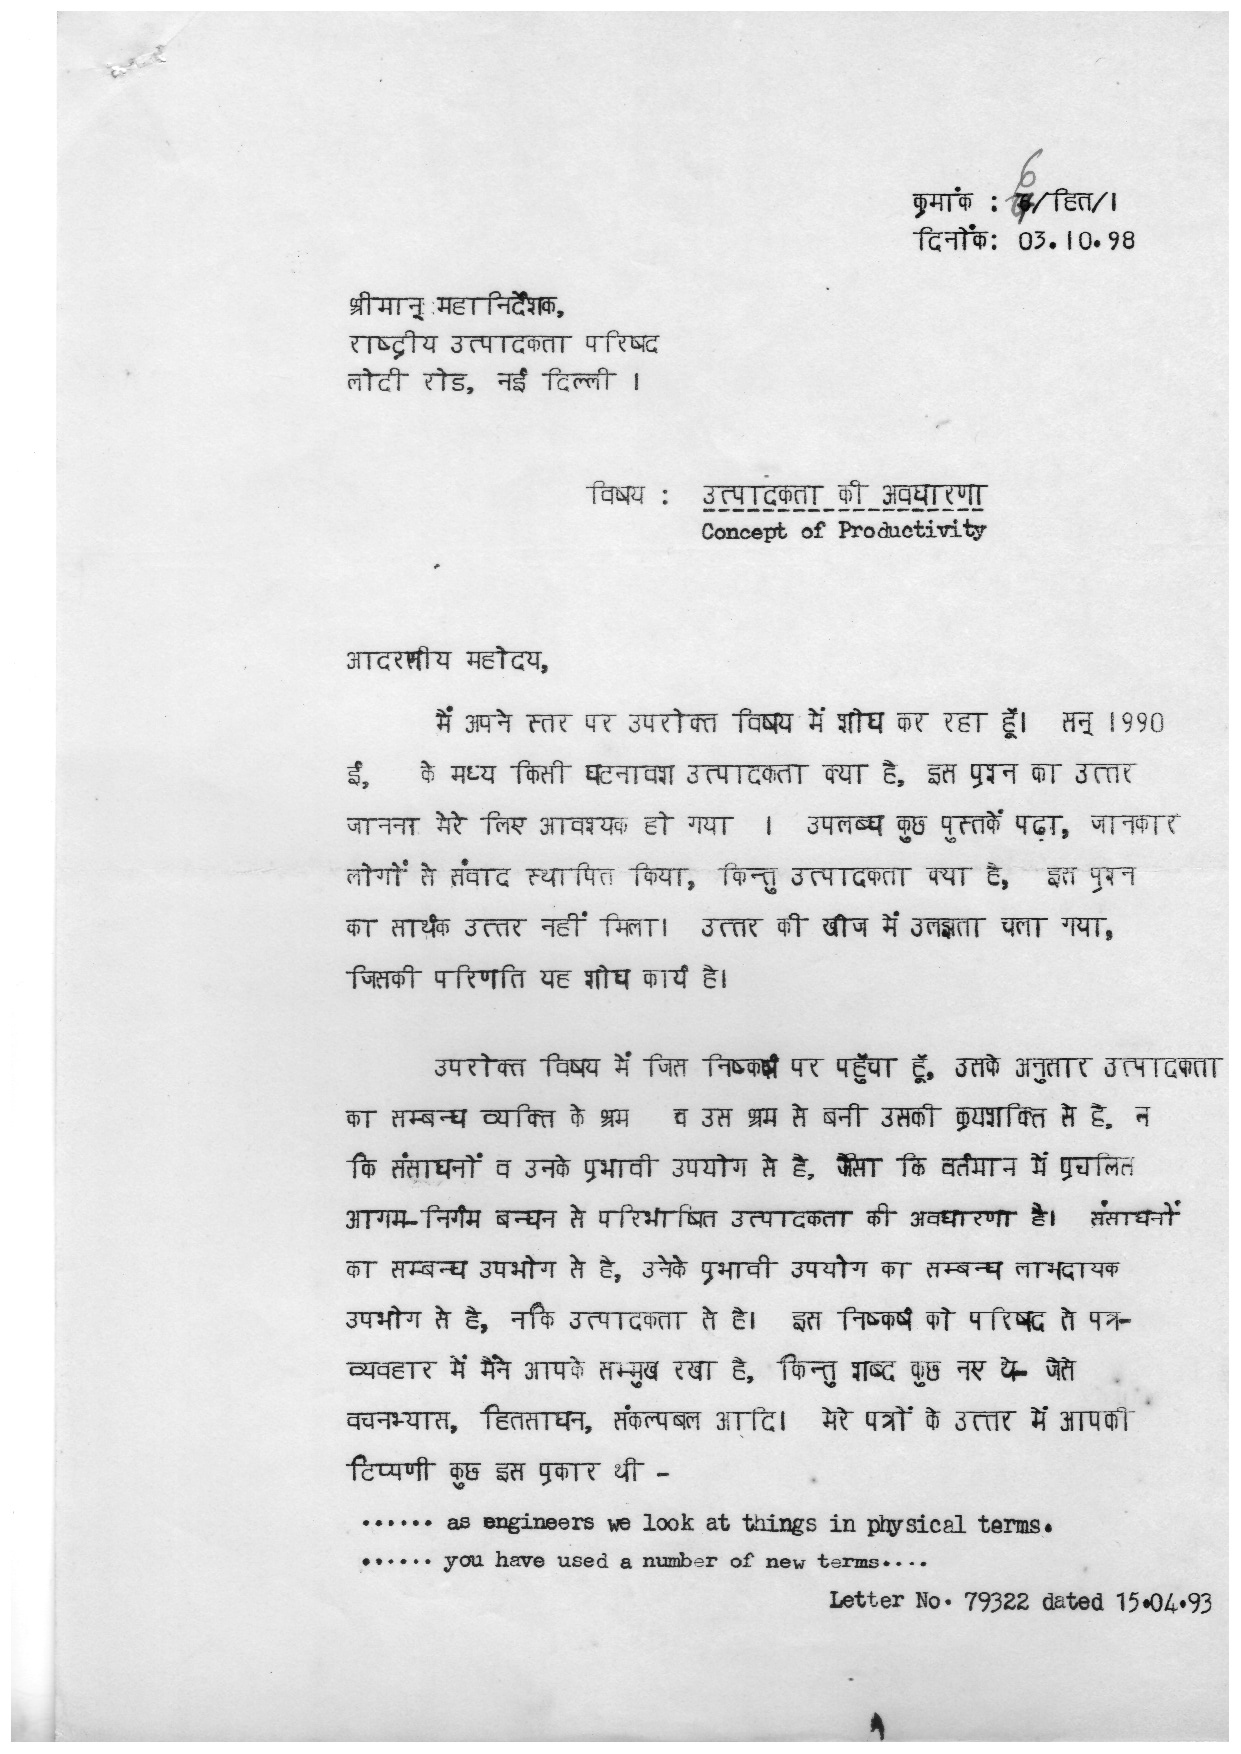 क्रमांक : 6/हित/1
दिनाँक: 03.10.98
श्रीमान् महानिर्देशक,
राष्ट्रीय उत्पादकता परिषद
लोदी रोड, नई दिल्ली ।
विषय : उत्पादकता की अवधारणा
Concept of Productivity
आदरणीय महोदय,
मैं अपने स्तर पर उपरोक्त विषय में शोध कर रहा हूँ। सन् 1990
ई, के मध्य किसी घटनावश उत्पादकता क्या है, इस प्रश्न का उत्तर
जानना मेरे लिए आवश्यक हो गया । उपलब्ध कुछ पुस्तकें पढ़ा, जानकार
लोगों से संवाद स्थापित किया, किन्तु उत्पादकता क्या है, इस प्रश्न
का सार्थक उत्तर नहीं मिला। उत्तर की खोज में उलझता चला गया,
जिसकी परिणति यह शोध कार्य है।
उपरोक्त विषय में जिस निष्कर्ष पर पहुँचा हूँ, उसके अनुसार उत्पादकता
का सम्बन्ध व्यक्ति के श्रम व उस श्रम से बनी उसकी क्रयशक्ति से है, न
कि संसाधनों व उनके प्रभावी उपयोग से है, जैसा कि वर्तमान में प्रचलित
आगम-निर्गम बन्धन से परिभाषित उत्पादकता की अवधारणा है। संसाधनों
का सम्बन्ध उपभोग से है, उनेके प्रभावी उपयोग का सम्बन्ध लाभदायक
उपभोग से है, नकि उत्पादकता से है। इस निष्कर्ष को परिषद से पत्र-
व्यवहार में मैंने आपके सम्मुख रखा है, किन्तु शब्द कुछ नए थे- जैसे
वचनभ्यास, हितसाधन, संकल्पबल आदि। मेरे पत्रों के उत्तर में आपकी
टिप्पणी कुछ इस प्रकार थी -
...... as engineers we look at things in physical terms.
...... you have used a number of new terms....
Letter No. 79322 dated 15.04.93